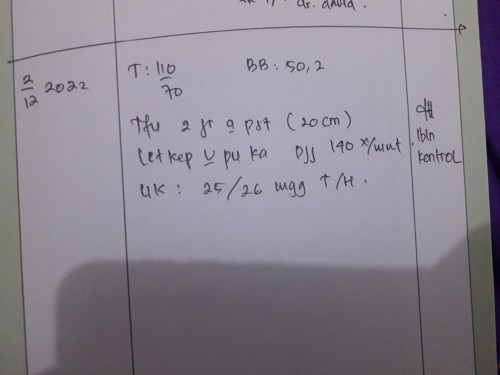 dr. david.
2/12 2022
T : 110/70 BB : 50,2
Tfu 2 jr a pst (20 cm)
Letkep v pu ka DJJ 140 x/mnt.
UK : 25/26 mgg T/H.
1bln
kontrol